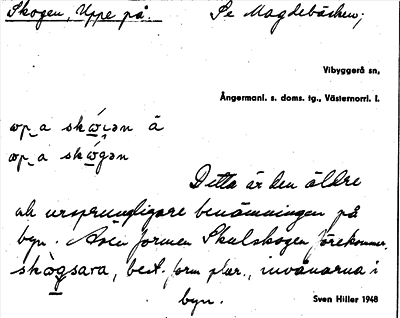 Skogen, Uppe på. Se Magdebäcken;
Vibyggerå sn,
Ångermanl. s. doms. tg., Västernorrl. l.
Detta är den äldre
och ursprungligare benämningen på
byn. formen Skulskogen förekommer.
skògsara, best. form plur., invånarna i
byn.
Sven Hiller 1948